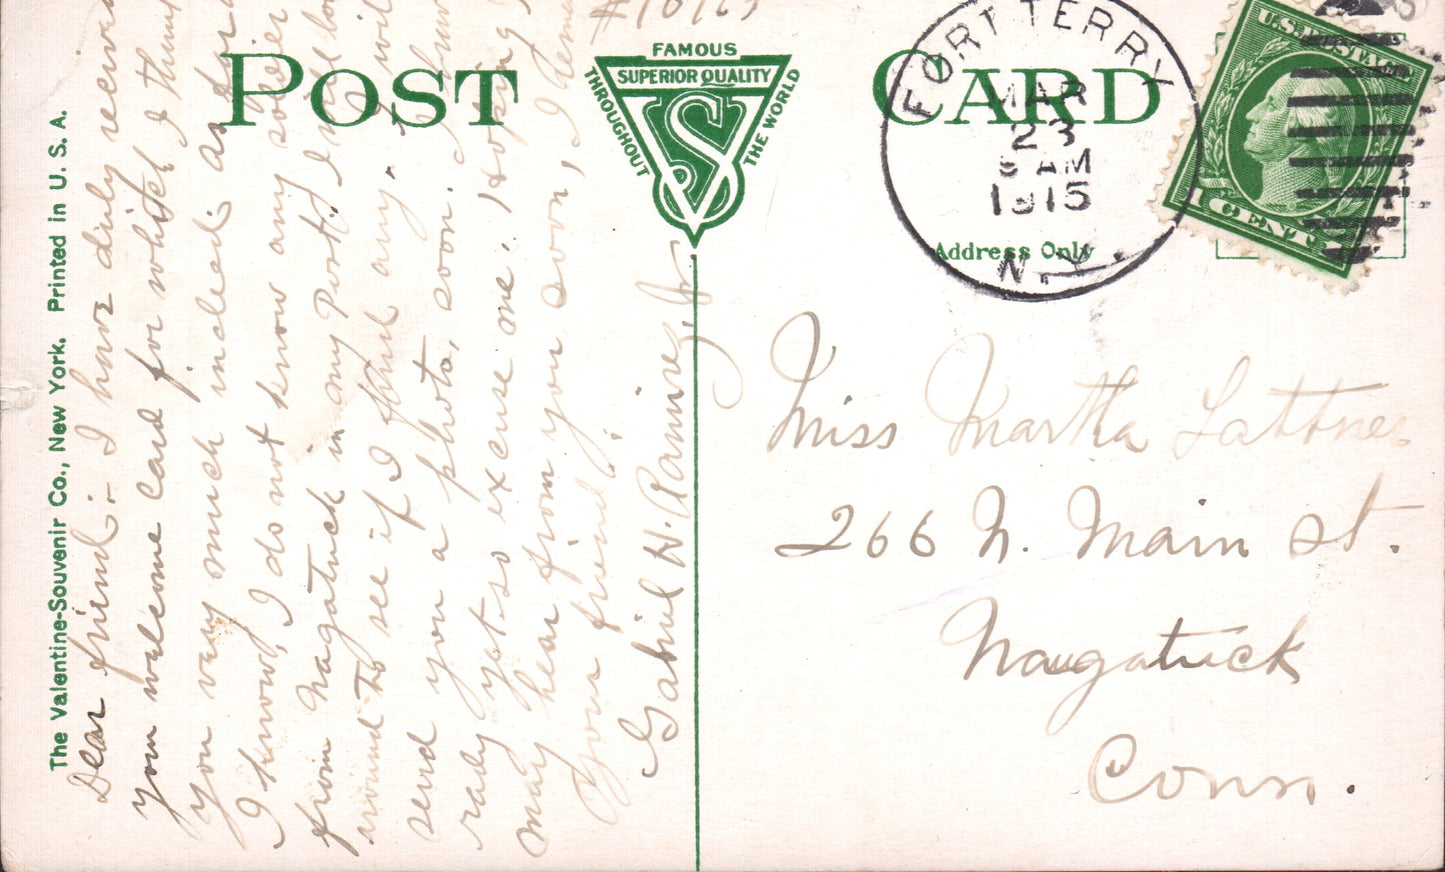 #10723
POST CARD
FAMOUS
SUPERIOR QUALITY
THROUGHOUT
THE WORLD
VS
The Valentine-Souvenir Co., New York. Printed in U. S. A.
Address Only
FORT TERRY
MAR
23
AM
1915
N.Y.
U.S. POSTAGE
1 CENT 1
Dear friend:- I have duly
you welcome card for which I
you very much incled: as for
I know, I do not know any soldier
from Nagatuck in my Port; I will
around to see if I find any. I will
send you a photo, soon.
rady yet so excuse me. Hoping
may hear from you soon, I
Your friend;
Gabriel H. Ramirez, Jr.
Miss Martha Lattner
266 N. Main St.
Naugatuck
Conn.